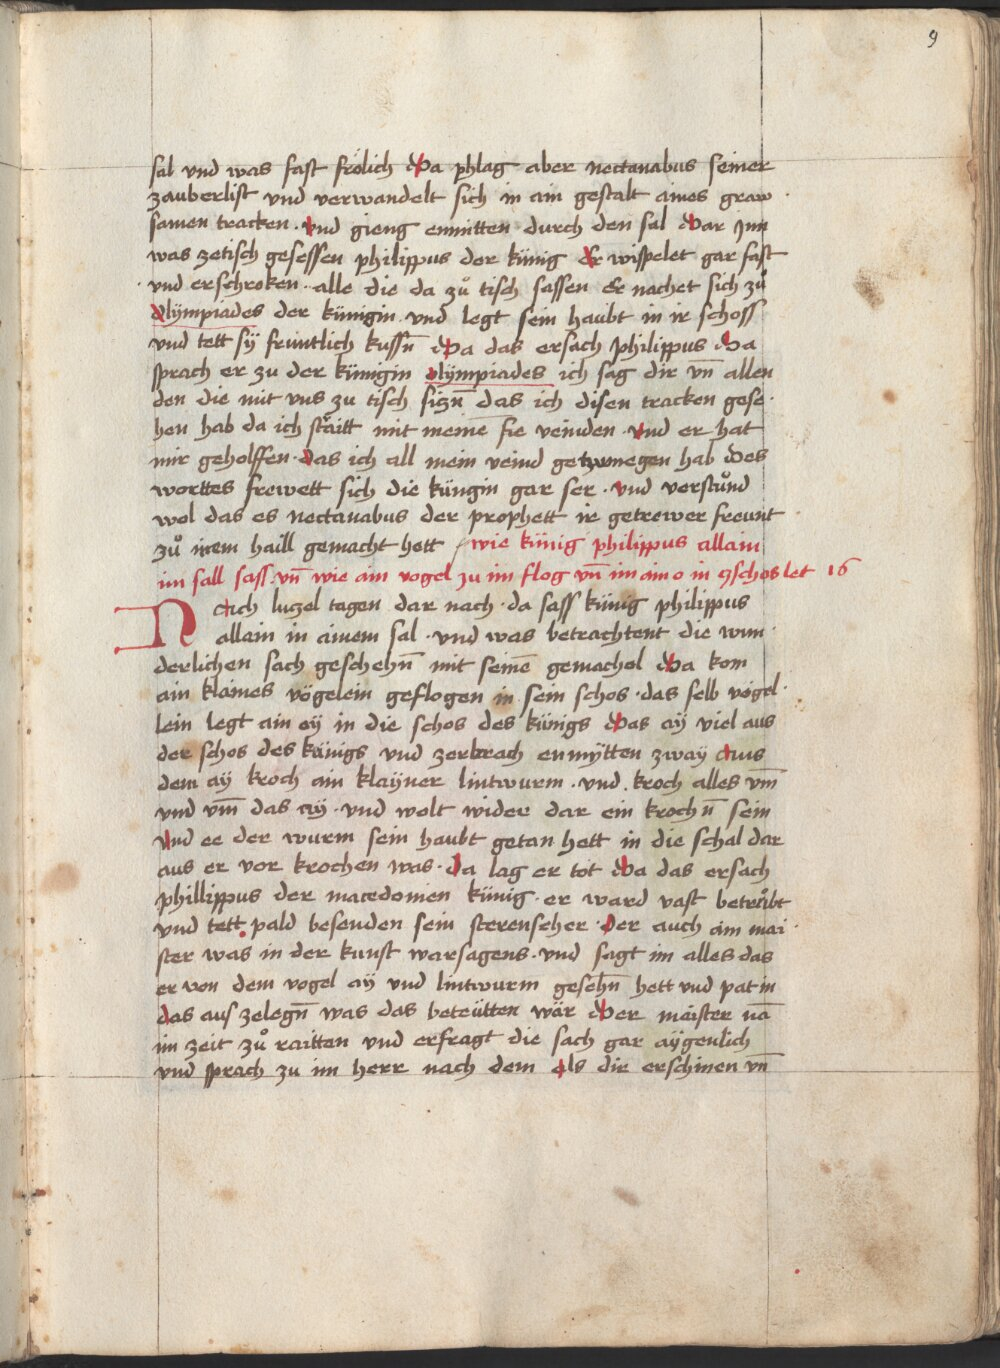 9
sal vnd was fast frölich Da phlag aber nectanabus seiner
zauberlist vnd verwandelt sich in ain gestalt aines graw
samen tracken . vnd gieng enmitten durch den sal Dar Jnn
was zetisch gesessen philippus der künig Er wispelet gar fast
vnd erschroken . alle die da zů tisch sassen Er nachet sich zů
Olÿmpiades der künigin vnd legt sein haubt in ir schoss
vnd tett sÿ freuntlich kussn̄ Da das ersach philippus Da
sprach er zu der künigin Olÿmpiades ich sag dir vn̄ allen
den die mit vns zu tisch siczn̄ das ich disen tracken gese
hen hab da ich sträitt mit meinē veinden . vnd er hat
mir geholffen . das ich all mein veind getzwnegen hab Des
worttes frewett sich die küngin gar ser . vnd verstůnd
wol das es nectanabus der prophett ir getrewer freunt
zů irem haill gemacht hett wie künig philippus allain
im sall sass . vn̄ wie ain vogel zu im flog vn̄ im ain o in ꝗschos let 16
Nach luczel tagen dar nach . da sass künig philippus
allain in ainem sal . vnd was betrachtent die wun
derlichen sach geschehn̄ mit seinē gemachel Da kom
ain klaines vögelein geflogen in sein schos . das selb vögel
lein legt ain eÿ in die schos des künigs Das aÿ viel aus
der schos des künigs vnd zerbrach enmÿtten zwaÿ Aus
dem aÿ kroch ain klaÿner lintwurm . vnd kroch alles vm̄
vnd vm̄ das aÿ . vnd wolt wider dar ein krochn̄ sein
Vnd ee der wurm sein haubt getan hett in die schal dar
aus er vor krochen was . da lag er tot Da das ersach
phillippus der macedonien künig . er ward vast betrůbt
vnd tett pald besenden sein sterenseher . Der auch ain mai
ster was in der kunst warsagens . vnd sagt im alles das
er von dem vogel aÿ vnd lintwurm gesehn̄ hett vnd pat in
das aus zelegn̄ was das beteütten wär Der meister nā
im zeit zů raitten vnd erfragt die sach gar aÿgenlich
vnd sprach zu im herr nach dem als dir erschinen vn̄